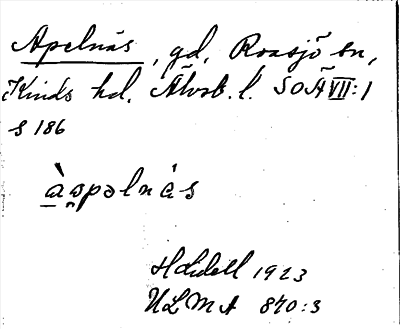 Apelnäs, gd, Roasjö sn,
Kinds hd. Älvsb. l. SOÄ VII:1
s 186
àpəlnás
H Lidell 1923
ULMA 840:3